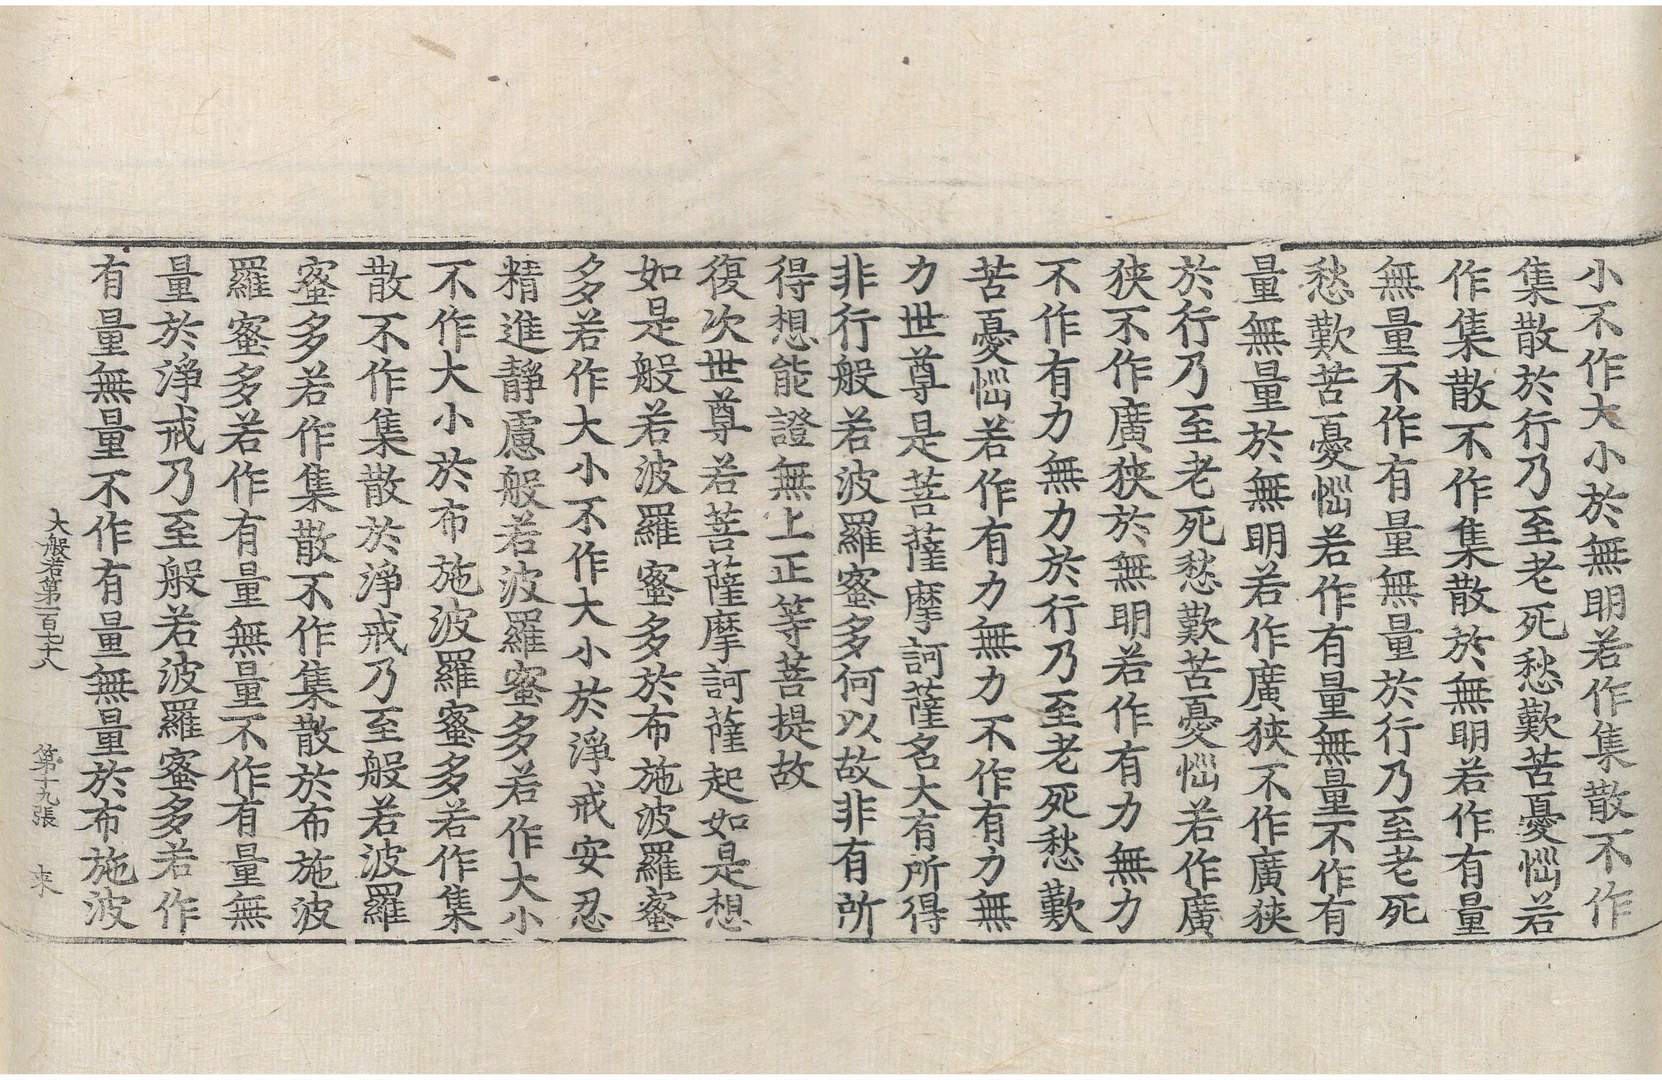 小不作大小於無明若作集散不作
集散於行乃至老死愁歎苦憂惱若
作集散不作集散於無明若作有量
無量不作有量無量於行乃至老死
愁歎苦憂惱若作有量無量不作有
量無量於無明若作廣狹不作廣狹
於行乃至老死愁歎苦憂惱若作廣
狹不作廣狹於無明若作有力無力
不作有力無力於行乃至老死愁歎
苦憂惱若作有力無力不作有力無
力世尊是菩薩摩訶薩名大有所得
非行般若波羅蜜多何以故非有所
得想能證無上正等菩提故
復次世尊若菩薩摩訶薩起如是想
如是般若波羅蜜多於布施波羅蜜
多若作大小不作大小於淨戒安忍
精進靜慮般若波羅蜜多若作大小
不作大小於布施波羅蜜多若作集
散不作集散於淨戒乃至般若波羅
蜜多若作集散不作集散於布施波
羅蜜多若作有量無量不作有量無
量於淨戒乃至般若波羅蜜多若作
有量無量不作有量無量於布施波
大般若第一百七十八 第十九張 來